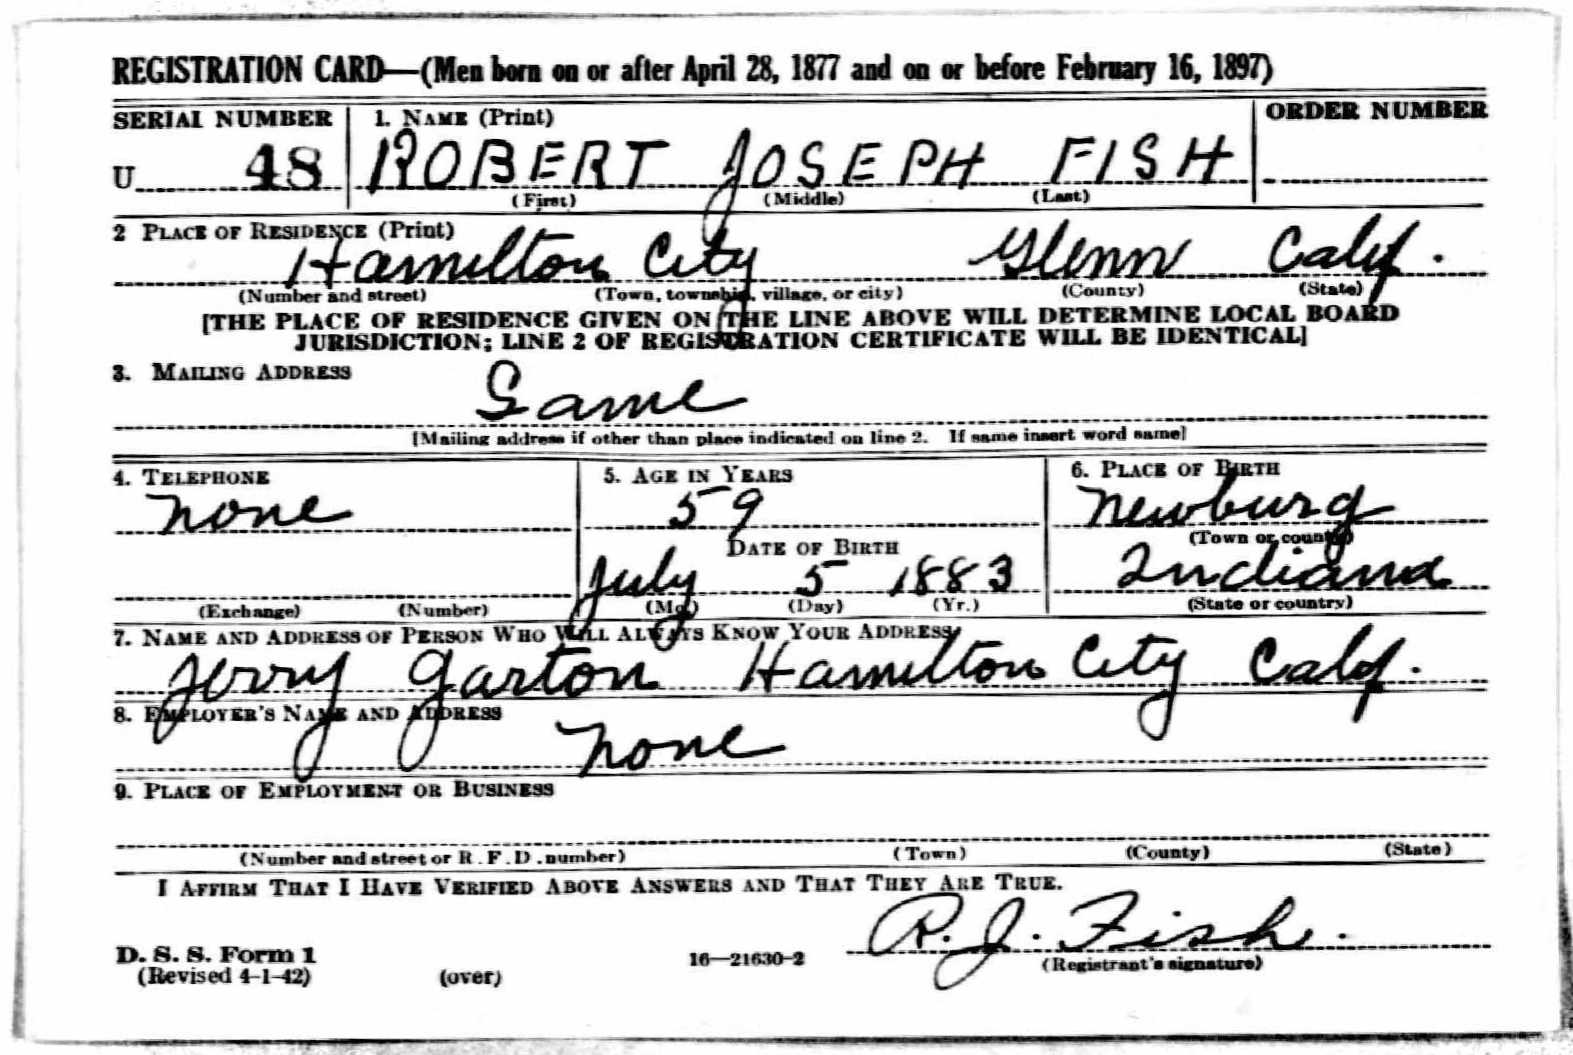 REGISTRATION CARD—(Men born on or after April 28, 1877 and on or before February 16, 1897)
SERIAL NUMBER 1. NAME (Print) ORDER NUMBER
U 48 ROBERT JOSEPH FISH
(First) (Middle) (Last)
2 PLACE OF RESIDENCE (Print)
Hamilton City Glenn Calif.
(Number and street) (Town, township, village, or city) (County) (State)
[THE PLACE OF RESIDENCE GIVEN ON THE LINE ABOVE WILL DETERMINE LOCAL BOARD
JURISDICTION; LINE 2 OF REGISTRATION CERTIFICATE WILL BE IDENTICAL]
3. MAILING ADDRESS
Same
[Mailing address if other than place indicated on line 2. If same insert word same]
4. TELEPHONE 5. AGE IN YEARS 6. PLACE OF BIRTH
None 59 Newburg
DATE OF BIRTH (Town or county)
July 5 1883 Indiana
(Exchange) (Number) (Mo.) (Day) (Yr.) (State or country)
7. NAME AND ADDRESS OF PERSON WHO WILL ALWAYS KNOW YOUR ADDRESS
Jerry Garton Hamilton City Calif.
8. EMPLOYER'S NAME AND ADDRESS
None
9. PLACE OF EMPLOYMENT OR BUSINESS
(Number and street or R.F.D. number) (Town) (County) (State)
I AFFIRM THAT I HAVE VERIFIED ABOVE ANSWERS AND THAT THEY ARE TRUE.
R. J. Fish.
D. S. S. Form 1 16—21630-2 (Registrant's signature)
(Revised 4-1-42) (over)